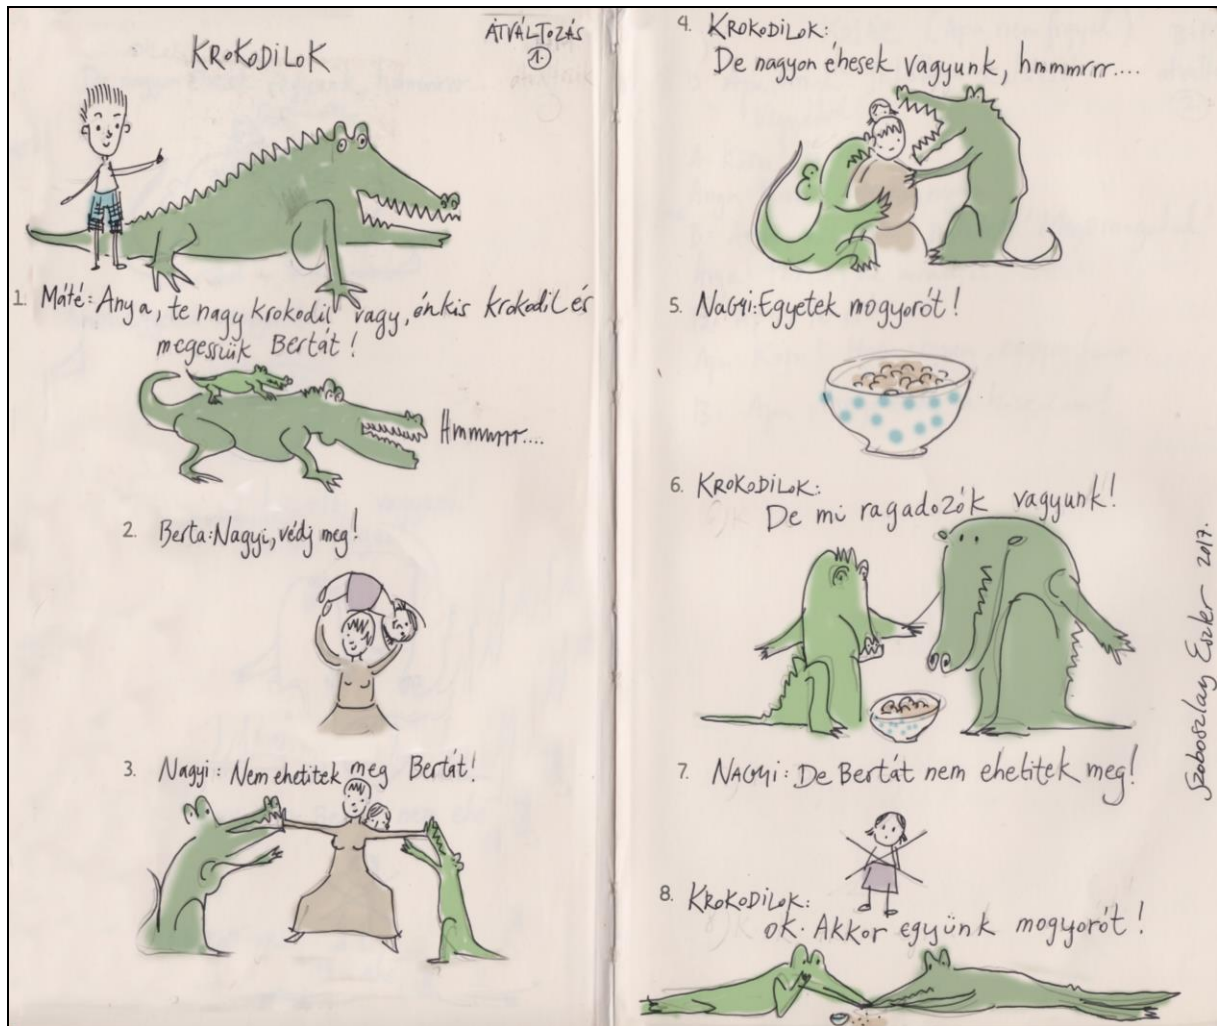 KROKODILOK
ÁTVÁLTOZÁS
1.
1. Máté: Anya, te nagy krokodil vagy, én kis krokodil és
megesszük Bertát!
Hmmmrrr....
2. Berta: Nagyi, védj meg!
3. Nagyi: Nem ehetitek meg Bertát!
4. KROKODILOK:
De nagyon éhesek vagyunk, hmmmrrr....
5. NAGYI: Egyetek mogyorót!
6. KROKODILOK:
De mi ragadozók vagyunk!
7. NAGYI: De Bertát nem ehetitek meg!
8. KROKODILOK:
ok. Akkor együnk mogyorót!
Szoboszlay Eszter 2017.